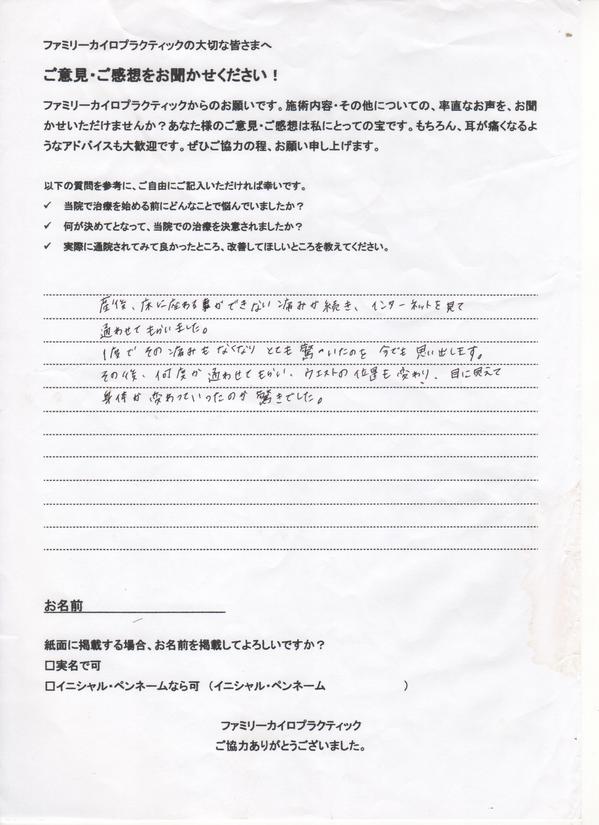 ファミリーカイロプラクティックの大切な皆さまへ
ご意見・ご感想をお聞かせください！
ファミリーカイロプラクティックからのお願いです。施術内容・その他についての、率直なお声を、お聞
かせいただけませんか？あなた様のご意見・ご感想は私にとっての宝です。もちろん、耳が痛くなるよ
うなアドバイスも大歓迎です。ぜひご協力の程、お願い申し上げます。
以下の質問を参考に、ご自由にご記入いただければ幸いです。
✓ 当院で治療を始める前にどんなことで悩んでいましたか？
✓ 何が決めてとなって、当院での治療を決意されましたか？
✓ 実際に通院されてみて良かったところ、改善してほしいところを教えてください。
産後、床に座る事ができない痛みが続き、インターネットを見て
通わせてもらいました。
1度でその痛みもなくなりとても驚いたのを今でも思い出します。
その後、何度か通わせてもらい、ウエストの位置も変わり、目に見えて
身体が変わっていったのが驚きでした。
お名前
紙面に掲載する場合、お名前を掲載してよろしいですか？
□実名で可
□イニシャル・ペンネームなら可 （イニシャル・ペンネーム ）
ファミリーカイロプラクティック
ご協力ありがとうございました。